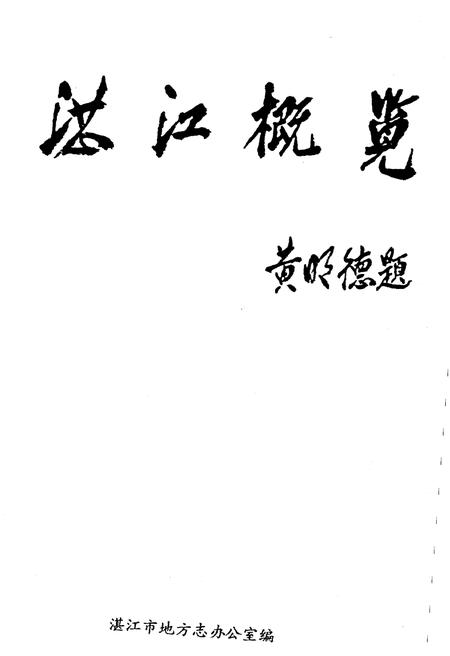 湛江概览
黄明德題
湛江市地方志办公室编